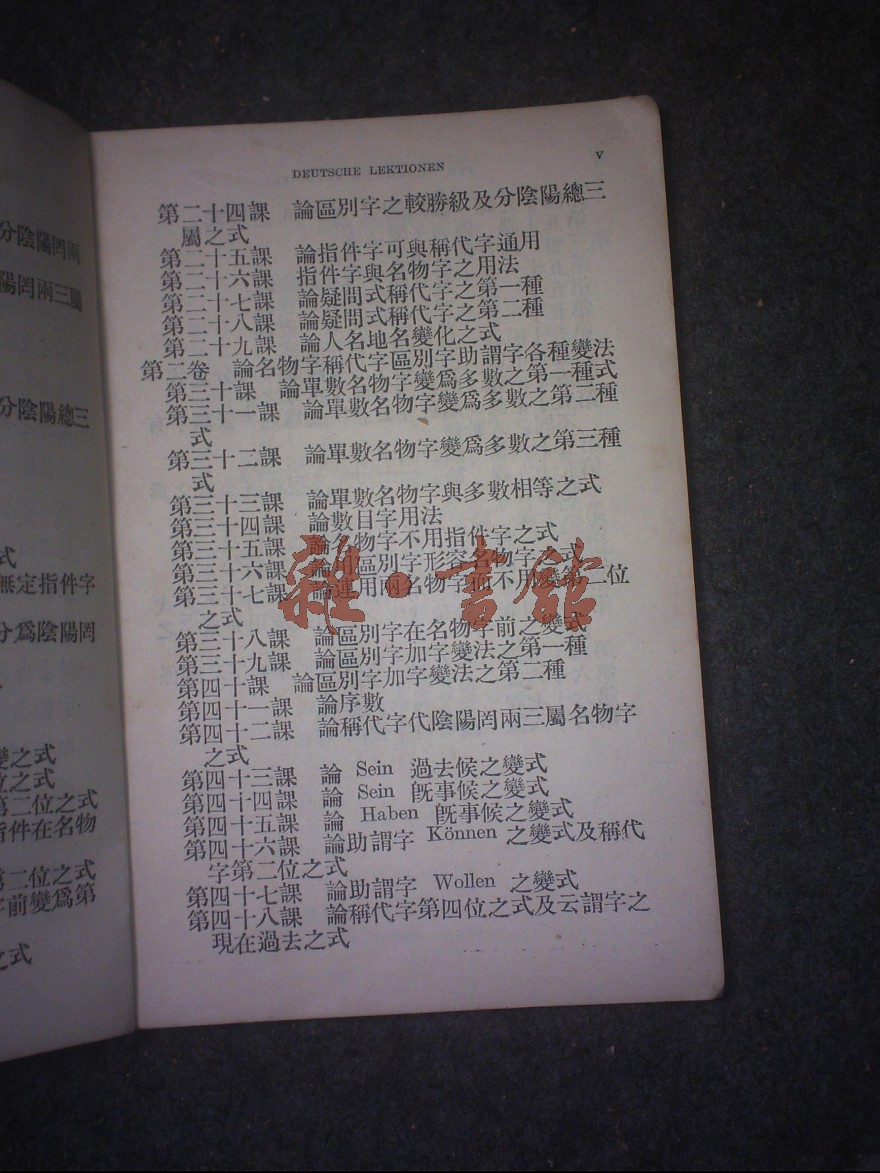 分陰陽罔兩
陽罔兩三屬
分陰陽總三
式
無定指件字
分爲陰陽罔
變之式
位之式
第二位之式
指件在名物
第二位之式
字前變爲第
之式
DEUTSCHE LEKTIONEN
v
第二十四課 論區別字之較勝級及分陰陽總三
屬之式
第二十五課 論指件字可與稱代字通用
第二十六課 指件字與名物字之用法
第二十七課 論疑問式稱代字之第一種
第二十八課 論疑問式稱代字之第二種
第二十九課 論人名地名變化之式
第二卷 論名物字稱代字區別字助謂字各種變法
第三十課 論單數名物字變爲多數之第一種式
第三十一課 論單數名物字變爲多數之第二種
式
第三十二課 論單數名物字變爲多數之第三種
式
第三十三課 論單數名物字與多數相等之式
第三十四課 論數目字用法
第三十五課 論名物字不用指件字之式
第三十六課 論用區別字形容名物字之式
第三十七課 論連用兩名物字而不用變第二位
之式
第三十八課 論區別字在名物字前之變式
第三十九課 論區別字加字變法之第一種
第四十課 論區別字加字變法之第二種
第四十一課 論序數
第四十二課 論稱代字代陰陽罔兩三屬名物字
之式
第四十三課 論 Sein 過去候之變式
第四十四課 論 Sein 旣事候之變式
第四十五課 論 Haben 旣事候之變式
第四十六課 論助謂字 Können 之變式及稱代
字第二位之式
第四十七課 論助謂字 Wollen 之變式
第四十八課 論稱代字第四位之式及云謂字之
現在過去之式
雜·書館